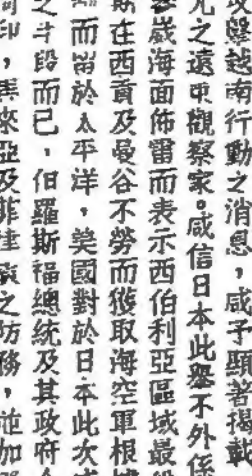 攻擊越南行動之消息，咸予顯著揭載
之遠東觀察家。咸信日本此舉不外係
歲海面佈雷而表示西伯利亞區域最
在西貢及曼谷不勞而獲取海空軍根據
而留於太平洋，美國對於日本此次
之斗段而已，但羅斯福總統及其政府
印，馬來亞及菲律賓之防務，並加